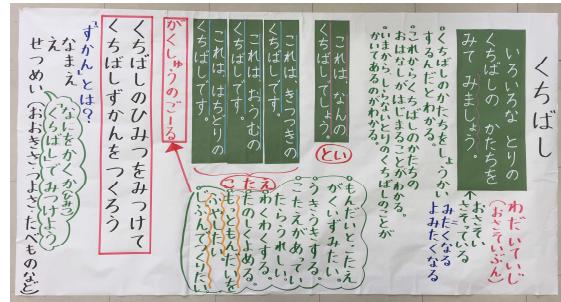 くちばし
いろいろな とりの
くちばしの かたちを
みて みましょう。
わだいていじ
(おさそいぶん)
おさそい
さそっている
みたくなる
よみたくなる
。くちばしのかたちをしょうかい
するんだとわかる。
。これからくちばしのかたちの
おはなしがはじまることがわかる。
。いまから、しらないとりのくちばしのことが
かいてあるのかわかる。
これは、なんの
くちばしでしょう。
とい
これは、きつつきの
くちばしです。
これは、おうむの
くちばしです。
これは、はちどりの
くちばしです。
こたえ
もんだいとこたえ
がくいずみたい。
うきうきする。
こたえがあってい
たらうれしい。
わくわくする。
たのしよめる。
もっともんだいを
ふやしたい。
じぶんでつくりたい
がくしゅうのごーる
くちばしのひみつをみつけて
くちばしずかんをつくろう
"ずかん"とは?
なまえ
え
せつめい(おおきさ・つよさ・たべものなど)
なにをかくか(ひみつ)
くちばしでみつけよう